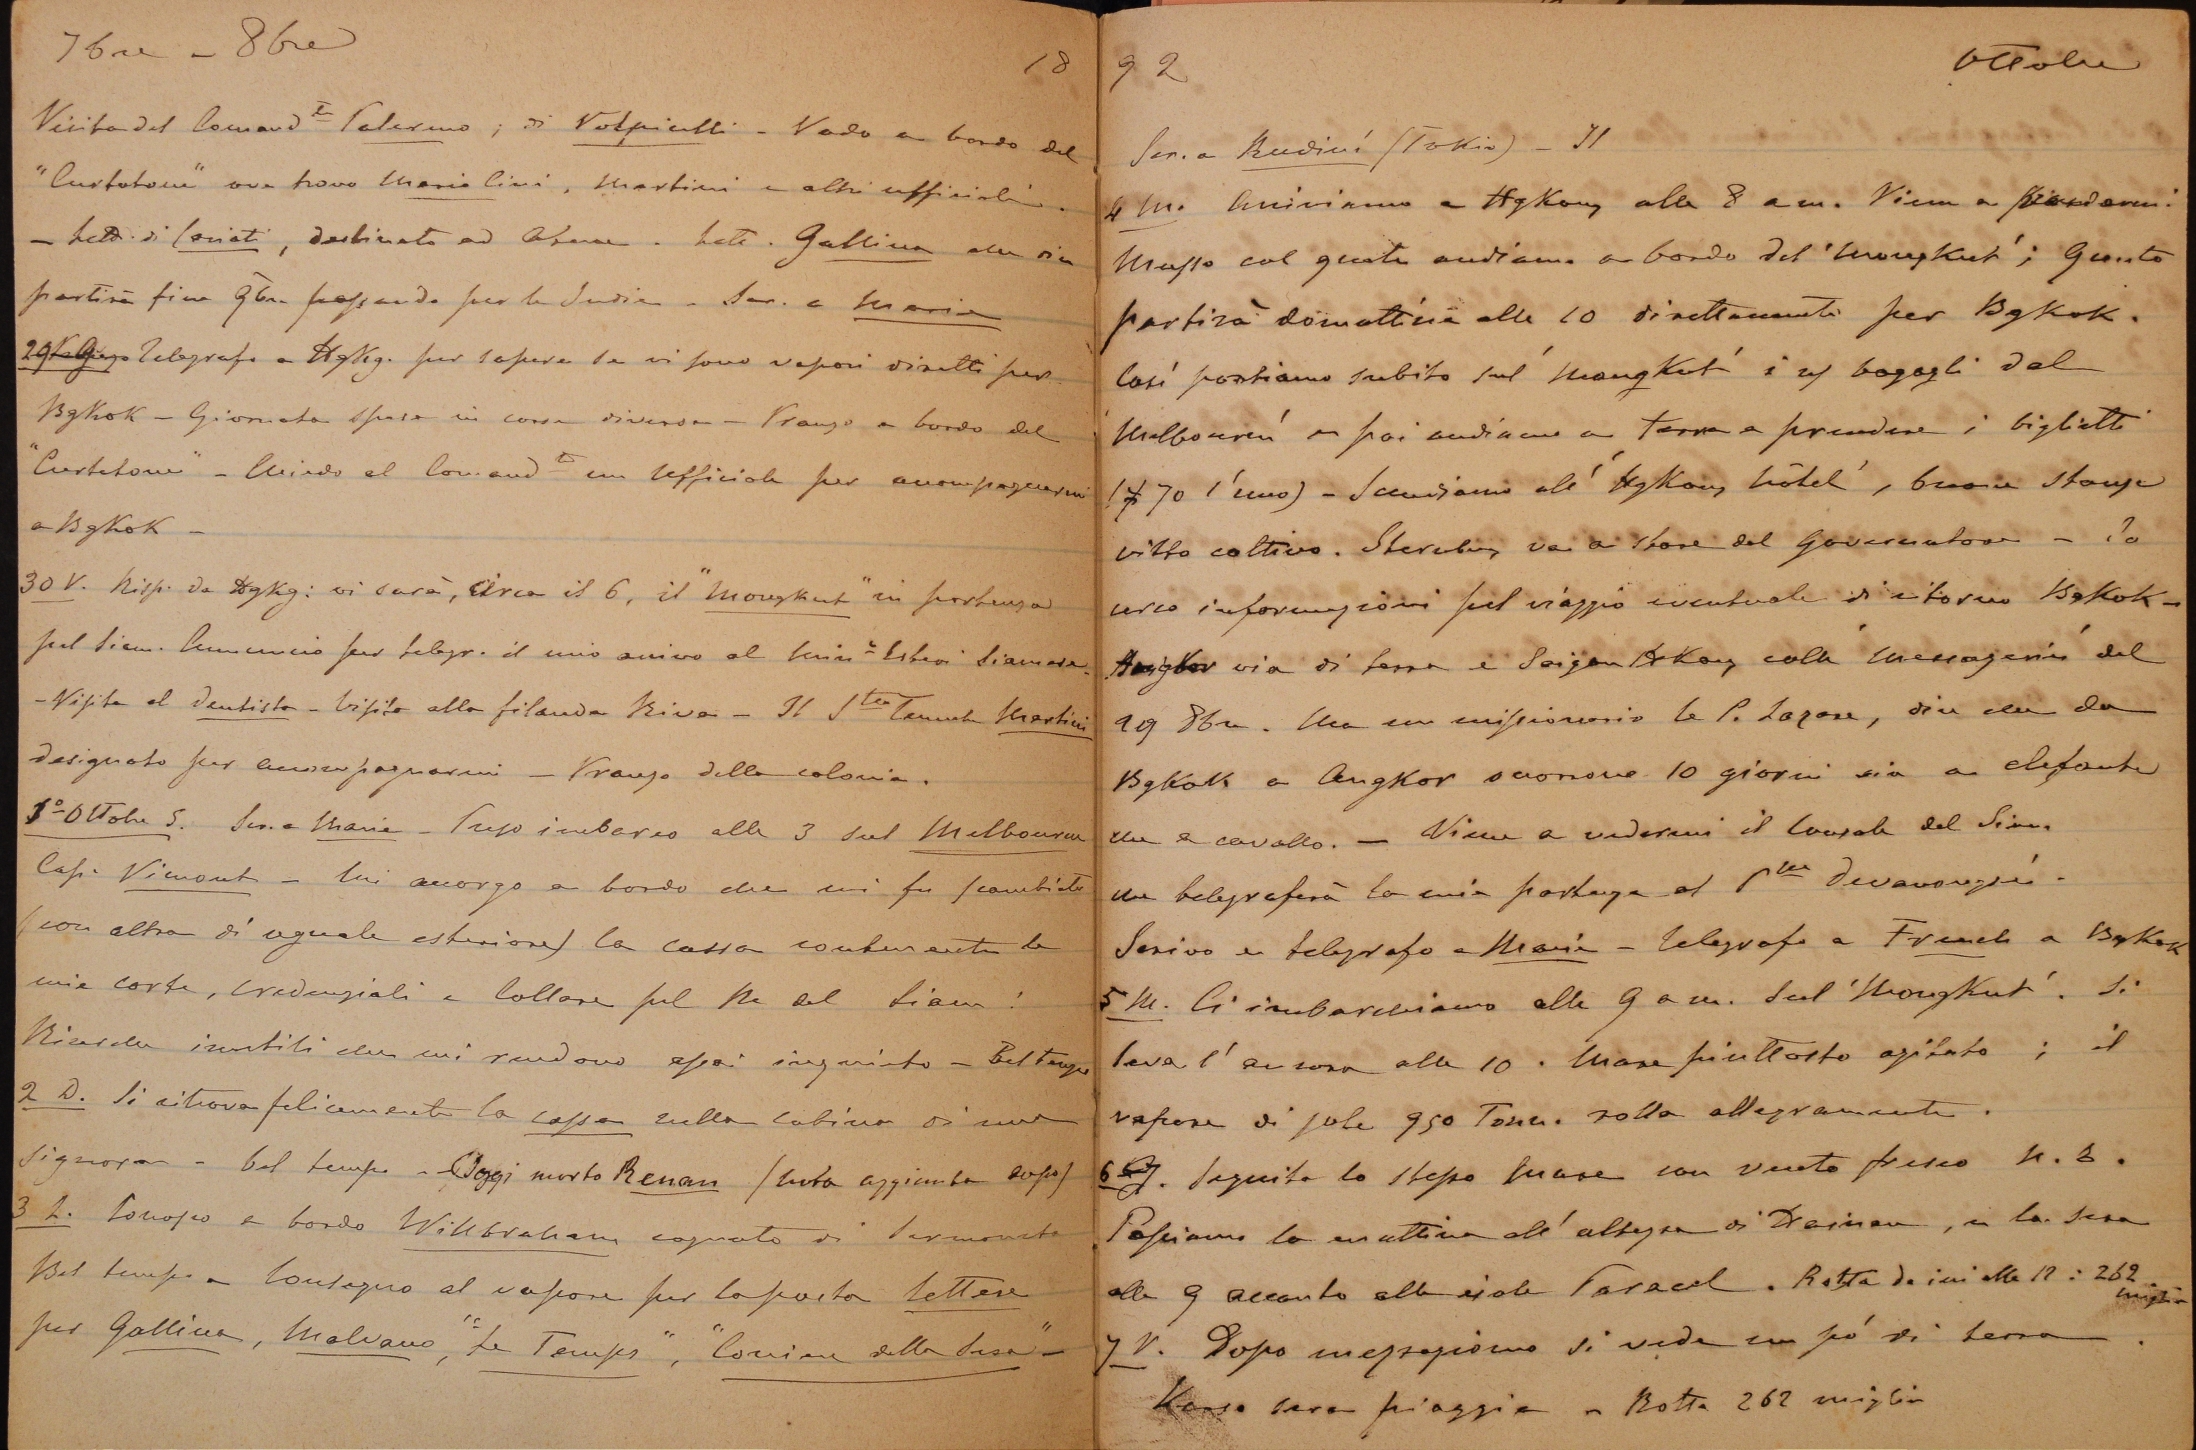 7bre - 8bre
18
Visita del Comand.te Palermo ; di Volpicelli - Vado a bordo del
"Curtatone" ove trovo Mariolini, Martini e altri ufficiali.
- Lett. di , destinato ad Atene. Lett. Gallina che dice
partirà fine 9bre passando per le Indie - Scr. a Maria
29 G. Telegrafo a HgKg. per sapere se vi sono vapori diretti per
BgKok - Giornata spesa in corse diverse - Pranzo a bordo del
"Curtatone" - Chiedo al Comand.te un Ufficiale per accompagnarmi
a BgKok -
30 V. Risp. da HgKg: vi sarà, circa il 6, il "Mongkut" in partenza
pel Siam. Annuncio per telegr. il mio arrivo al Min.o Esteri Siamese.
- Visita al dentista - Visita alla filanda Riva - Il S.ten Tenente Martini
designato per accompagnarmi - Pranzo della colonia.
1° Ottobre S. Scr. a Maria - Prego imbarco alle 3 sul Melbourne
Cap. Vimont - Mi accorgo a bordo che mi fu scambiata
(con altra di uguale esteriore) la cassa contenente le
mie carte, credenziali e Collare pel Re del Siam!
Ricerche inutili che mi rendono assai inquieto - Bel tempo
2 D. Si ritrova felicemente la cassa nella cabina di una
signora - bel tempo - Oggi morto Renan (nota aggiunta dopo)
3 L. Conosco a bordo Willbraham cognato di Sermoneta
Bel tempo - Consegno al vapore per la posta lettere
per Gallina, Malvano, "Le Temps", "Corriere della Sera" -
92
Ottobre
Scr. a Rudinì (Tokio) - Il
4 M. Arriviamo a HgKong alle 8 a m. Viene a prendermi
Musso col quale andiamo a bordo del 'Mongkut'; Questo
partirà domattina alle 10 direttamente per BgKok.
Così portiamo subito sul 'Mongkut' i bagagli dal
'Melbourne' e poi andiamo a terra a prendere i biglietti
($ 70 l'uno) - Scendiamo all' 'HgKong hôtel', buone stanze
vitto cattivo. va a stare dal Governatore - Io
cerco informazioni pel viaggio eventuale di ritorno BgKok -
Angkor via di terra e Saigon HKong colle 'Messageries' del
29 8bre. Ma un missionario le P. Lazare, dice che da
BgKok a Angkor occorrono 10 giorni sia a elefante
che a cavallo. - Viene a vedermi il Console del Siam
che telegraferà la mia partenza al P.pe Devawongse.
Scrivo e telegrafo a Maria - Telegrafo a French a BgKok
5 M. Ci imbarchiamo alle 9 a m. sul 'Mongkut'. Si
leva l'ancora alle 10. Mare piuttosto agitato ; il
vapore di sole 950 Tonn. rolla allegramente.
6 G. Seguita lo stesso mare con vento fresco N. E.
Passiamo la mattina all'altezza di Hainan, e la sera
alle 9 accanto alle isole Paracel. Rotta da ieri alle 12 : 262
miglia
7 V. Dopo mezzogiorno si vede un pó di terra.
Verso sera pioggia - Rotta 262 miglia